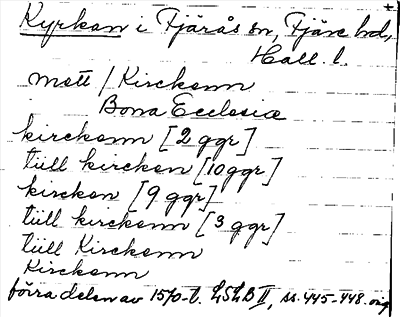 Kyrkan i Fjärås sn, Fjäre hd,
Hall. l.
mott / Kirckenn
Bona Ecclesiæ
kirckenn [2 ggr]
tiill kircken [10 ggr]
kircken [9 ggr]
tiill kirckenn [3 ggr]
tiill Kirckenn
Kirckenn
förra delen av 1570-t. LSLB II, ss. 445-448. orig